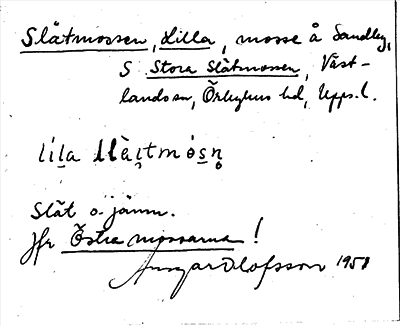 Slätmossen, Lilla, mosse å Sandby,
S Stora Slätmossen, Väst-
landa sn, Örbyhus hd, Upps. l.
lila
Slät o. jämn.
Jfr Östra mossarna!
Ansgar Olofsson 1951